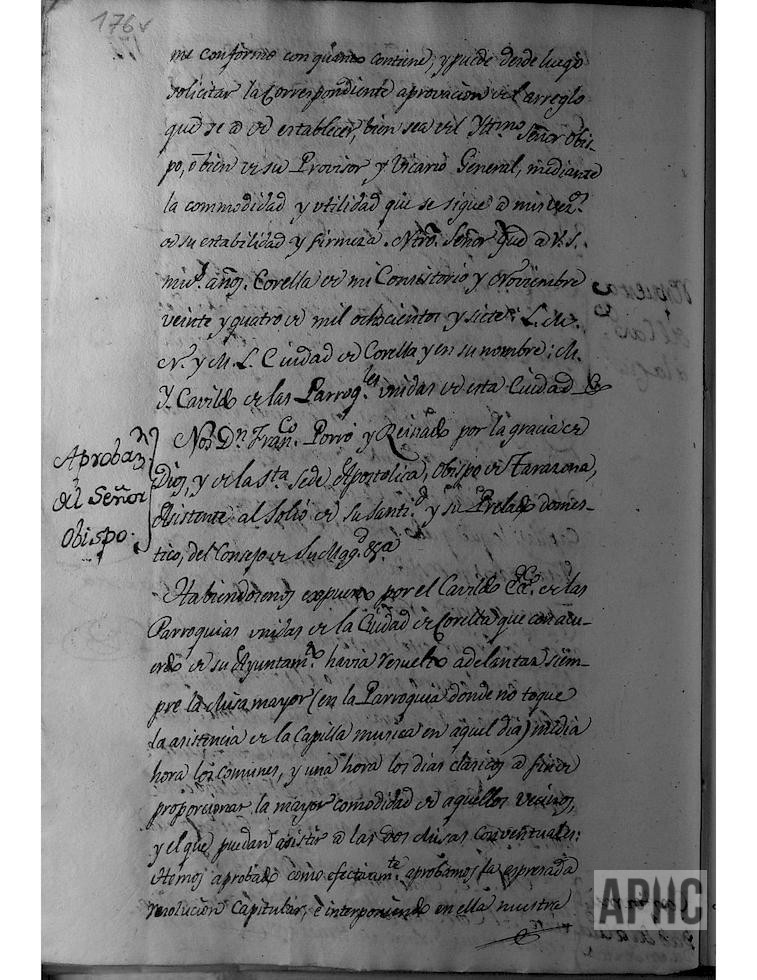 176v
me conformo con quanto contiene, y puede desde luego
solicitar la Correspondiente aprovacion del arreglo
que se a de establecer, bien sea del Yltmo. Señor Obis-
po, o bien de su Provisor y Vicario General, mediante
la commodidad y utilidad que se sigue a mis vez.os
de su estabilidad y firmeza. Ntro. Señor gue. a V.S.
mu.s años. Corella de mi Consistorio y Noviembre
veinte y quatro de mil ochocientos y siete: L. M.
N. y M. L. Ciudad de Corella y en su nombre: M.
Y. Cavildo de las Parroq.les unidas de esta Ciudad
Aprobaz.n
del Señor
Obispo.
Nos Dn. Fran.co Porró y Reinado por la gracia de
Dios, y de la Sta. Sede Apostolica, Obispo de Tarazona,
Asistente al Solio de su Santi.d y su Prelado domes-
tico, del Consejo de Su Mag.d &a
Habiendosenos expuesto por el Cavildo Ecco. de las
Parroquias unidas de la Ciudad de Corella que con acu-
erdo de su Ayuntam.to havia resuelto adelantar siem-
pre la Misa mayor (en la Parroquia donde no toque
la asistencia de la Capilla musica en aquel dia) media
hora los comunes, y una hora los dias clasicos a fin de
proporcionar la mayor comodidad de aquellos vecinos,
y el que puedan asistir a las dos Misas Conventuales:
Hemos aprobado como efectivam.te aprobamos la espresada
resolucion Capitular, e interponiendo en ella nuestra
APHC